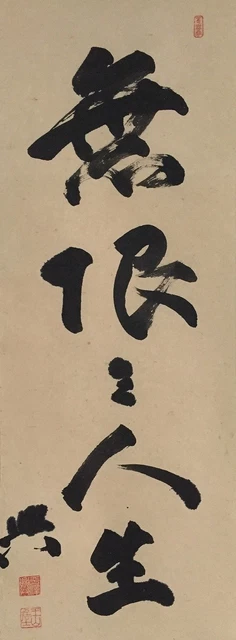 無限之人生